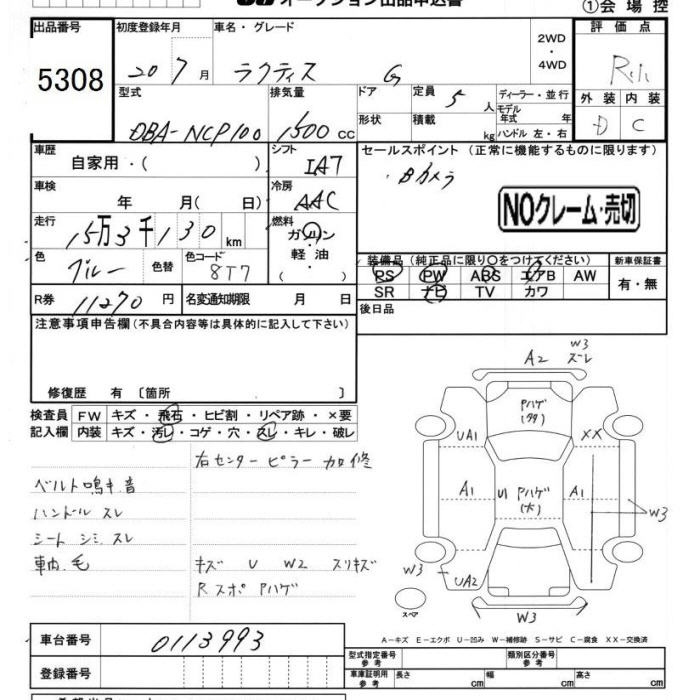 オークション出品申込書 ①会場控
出品番号 初度登録年月 車名・グレード 評価点
5308 20 7月 ラクティス G 2WD・4WD
型式 排気量 ドア 定員 5人 ディーラー・並行 外装 内装
DBA-NCP100 1500cc 形状 積載 kg モデル年式 年 D C
ハンドル 左・右
車歴 シフト セールスポイント (正常に機能するものに限ります)
自家用・( ) IA7 ・Bカメラ
車検 冷房
年 月( 日) AAC NOクレーム・売切
走行 燃料
15万3千130km ガソリン・軽油・( )
色 色替 色コード 装備品 (純正品に限り○をつけてください) 新車保証書
ブルー 8T7 PS PW ABS エアB AW 有・無
SR ナビ TV カワ
R券 11270円 名変通知期限 月 日 後日品
注意事項申告欄(不具合内容等は具体的に記入して下さい)
修復歴 有〔箇所 〕
検査員 FW キズ・飛石・ヒビ割・リペア跡・×要
記入欄 内装 キズ・汚レ・コゲ・穴・スレ・キレ・破レ
右センターピラー加修
ベルト鳴キ音
ハンドルスレ
シート シミ スレ
車内毛 キズ U W2 スリキズ
Rスポ Pハゲ
A2 W3 ズレ
Pハゲ(多)
UA1 XX
A1 U1 Pハゲ(大) A1
W3
W3 UA2
スペア W3
A-キズ E-エクボ U-凹み W-補修跡 S-サビ C-腐食 XX-交換済
車台番号 0113993
登録番号
型式指定番号 参考 類別区分番号 参考
車庫証明用 参考 長さ cm 幅 cm 高さ cm